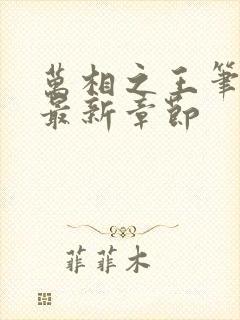 萬相之王筆
最新章節
菲菲木